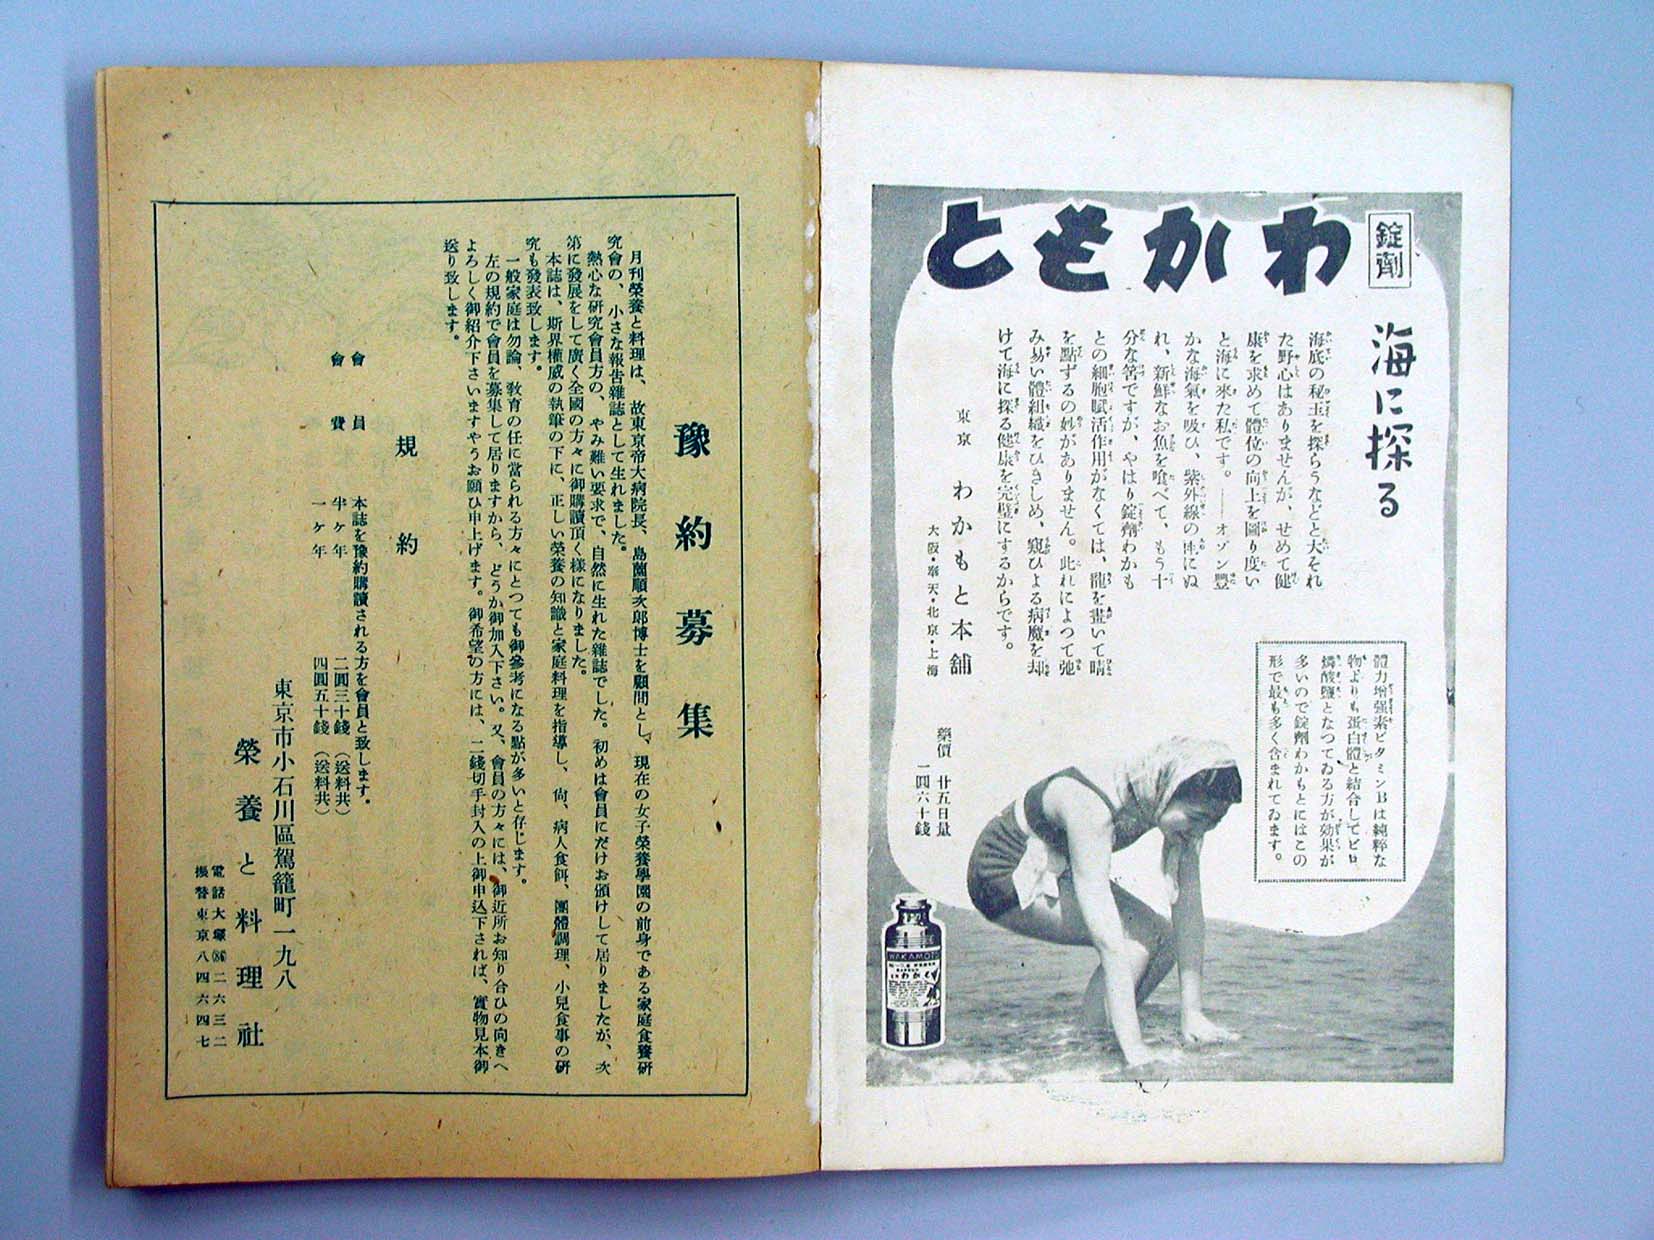 錠劑
わかもと
海に探る
海底の秘玉を探らうなどと大それ
た野心はありませんが、せめて健
康を求めて體位の向上を圖り度い
と海に來た私です。――オゾン豐
かな海氣を吸ひ、紫外線の中にぬ
れ、新鮮なお魚を喰べて、もう十
分な筈ですが、やはり錠劑わかも
との細胞賦活作用がなくては、龍を畫いて睛
を點ずるの妙がありません。此れによつて弛
み易い體組織をひきしめ、窺ひよる病魔を却
けて海に探る健康を完璧にするからです。
東京 わかもと本舖
大阪・奉天・北京・上海
藥價 廿五日量
一圓六十錢
體力增强素ビタミンBは純粹な
物よりも蛋白體と結合してピロ
燐酸鹽となつてゐる方が効果が
多いので錠劑わかもとにはこの
形で最も多く含まれてゐます。
WAKAMOTO
わかもと
豫約募集
月刊榮養と料理は、故東京帝大病院長、島薗順次郞博士を顧問とし、現在の女子榮養學園の前身である家庭食養硏
究會の、小さな報告雜誌として生れました。
熱心な硏究會員方の、やみ難い要求で、自然に生れた雜誌でした。初めは會員にだけお頒けして居りましたが、次
第に發展をして廣く全國の方々に御購讀頂く樣になりました。
本誌は、斯界權威の執筆の下に、正しい榮養の知識と家庭料理を指導し、尙、病人食餌、團體調理、小兒食事の硏
究も發表致します。
一般家庭は勿論、敎育の任に當られる方々にとつても御參考になる點が多いと存じます。
左の規約で會員を募集して居りますから、どうか御加入下さい。又、會員の方々には、御近所お知り合ひの向きへ
よろしく御紹介下さいますやうお願ひ申上げます。御希望の方には、二錢切手封入の上御申込下されば、實物見本御
送り致します。
規約
會員 本誌を豫約購讀される方を會員と致します。
會費 半ヶ年 二圓三十錢(送料共)
一ヶ年 四圓五十錢(送料共)
東京市小石川區駕籠町一九八
榮養と料理社
電話大塚(86)二六三二
振替東京八四六四七